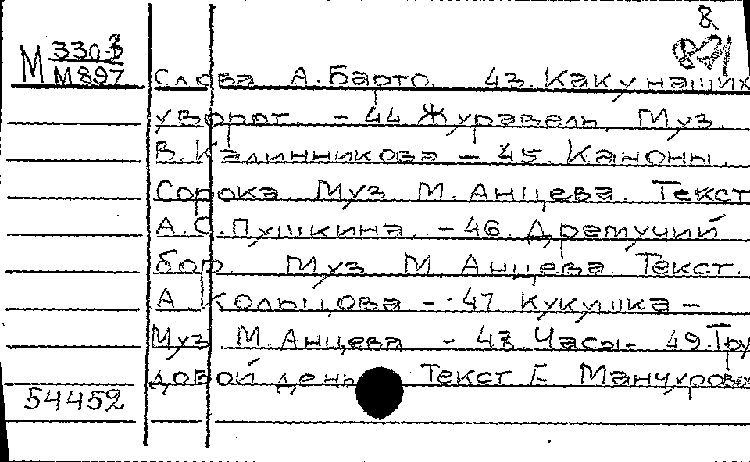 8
М 330-3
М 897
Слова А. Барто 43. Как у наших
у ворот. - 44 Журавель. Муз.
В. Калинникова - 45. Каноны.
Сорока Муз М. Анцева. Текст
А.С. Пушкина. - 46. Дремучий
бор. Муз М. Анцева Текст.
А Кольцова - 47 Кукушка -
Муз М. Анцева - 48 Часы - 49. Тру
довой день Текст Г. Манчурова
54452